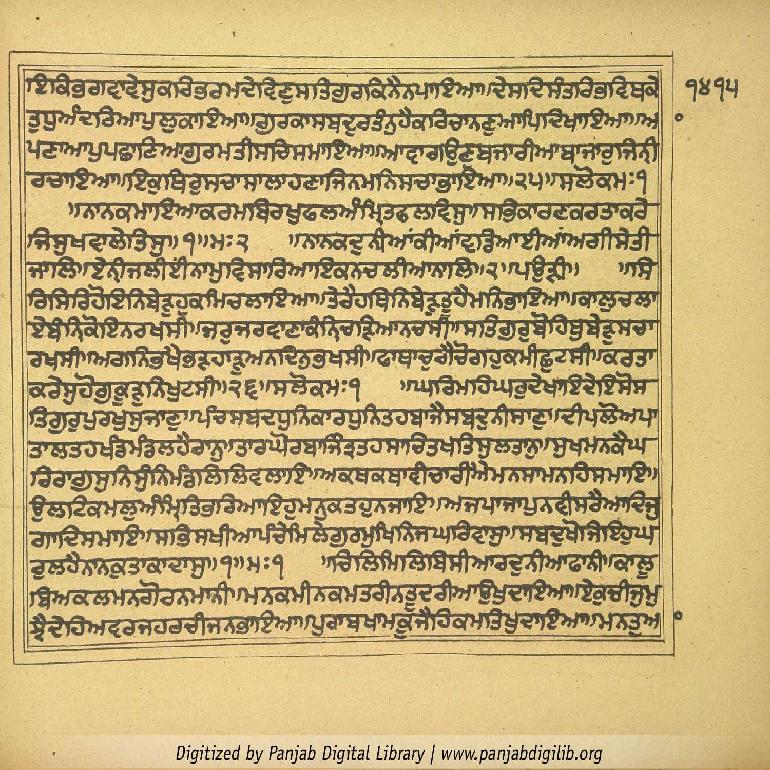 ਇਕਿਭਗਵਾਵੇਸੁਕਰਿਭਰਮਦੇਵਿਣੁਸਤਿਗੁਰਕਿਨੈਨਪਾਇਆ॥ਦੇਸਦਿਸੰਤਰਿਭਵਿਥਕੇ
੧੪੧੫
ਤੁਧੁਅੰਦਰਿਆਪੁਲੁਕਾਇਆ॥ਗੁਰਕਾਸਬਦੁਰਤੰਨੁਹੈਕਰਿਚਾਨਣੁਆਪਿਦਿਖਾਇਆ॥ਆ
ਪਣਾਆਪੁਪਛਾਣਿਆਗੁਰਮਤੀਸਚਿਸਮਾਇਆ॥ਆਵਾਗਉਣੁਬਜਾਰੀਆਂਬਾਜਾਰੁਜਿਨੀ
ਰਚਾਇਆ॥ਇਕੁਥਿਰੁਸਚਾਸਾਲਾਹਣਾਜਿਨਮਨਿਸਚਾਭਾਇਆ॥੨੫॥ਸਲੋਕਮਃ੧
॥ਨਾਨਕਮਾਇਆਕਰਮਬਿਰਖੁਫਲਅੰਮ੍ਰਿਤਫਲਵਿਸੁ॥ਸਭਿਕਾਰਣਕਰਤਾਕਰੇ
ਜਿਸੁਖਵਾਲੇਤਿਸੁ॥੧॥ਮਃ੨ ॥ਨਾਨਕਦੁਨੀਆਂਕੀਆਂਵਡਿਆਈਆਂਅਗੀਸੇਤੀ
ਜਾਲਿ॥ਏਨੀਜਲੀਈਂਨਾਮੁਵਿਸਾਰਿਆਇਕਨਚਲੀਆਨਾਲਿ॥੨॥ਪਉੜੀ॥ ॥ਸਿ
ਰਿਸਿਰਿਹੋਇਨਿਬੇੜੁਹੁਕਮਿਚਲਾਇਆ॥ਤੇਰੈਹਥਿਨਿਬੇੜੁਤੂਹੈਮਨਿਭਾਇਆ॥ਕਾਲੁਚਲਾ
ਏਬੰਨਿਕੋਇਨਰਖਸੀ॥ਜਰੁਜਰਵਾਣਾਕੰਨਿਚੜਿਆਨਚਸੀ॥ਸਤਿਗੁਰੁਬੋਹਿਥੁਬੇੜੁਸਚਾ
ਰਖਸੀ॥ਅਗਨਿਭਖੈਭੜਹਾੜੁਅਨਦਿਨੁਭਖਸੀ॥ਫਾਥਾਚੁਗੈਚੋਗਹੁਕਮੀਛੁਟਸੀ॥ਕਰਤਾ
ਕਰੇਸੁਹੋਗੁਕੂੜੁਨਿਖੁਟਸੀ॥੨੬॥ਸਲੋਕਮਃ੧ ॥ਘਰਿਮਹਿਘਰੁਦੇਖਾਇਦੇਇਸੋਸ
ਤਿਗੁਰੁਪੁਰਖੁਸੁਜਾਣੁ॥ਪੰਚਸਬਦਧੁਨਿਕਾਰਧੁਨਿਤਹਬਾਜੈਸਬਦੁਨੀਸਾਣੁ॥ਦੀਪਲੋਅਪਾ
ਤਾਲਤਹਖੰਡਮੰਡਲਹੈਰਾਨੁ॥ਤਾਰਘੋਰਬਾਜਿੰਤ੍ਰਤਹਸਾਚਿਤਖਤਿਸੁਲਤਾਨੁ॥ਸੁਖਮਨਕੈਘ
ਰਿਰਾਗੁਸੁਨਿਸੁੰਨਿਮੰਡਲਿਲਿਵਲਾਇ॥ਅਕਥਕਥਾਵੀਚਾਰੀਐਮਨਸਾਮਨਹਿਸਮਾਇ॥
ਉਲਟਿਕਮਲੁਅੰਮ੍ਰਿਤਿਭਰਿਆਇਹੁਮਨੁਕਤਹੁਨਜਾਇ॥ਅਜਪਾਜਾਪੁਨਵੀਸਰੈਆਦਿਜੁ
ਗਾਦਿਸਮਾਇ॥ਸਭਿਸਖੀਆਪੰਚੇਮਿਲੇਗੁਰਮੁਖਿਨਿਜਘਰਿਵਾਸੁ॥ਸਬਦੁਖੋਜਿਇਹੁਘ
ਰੁਲਹੈਨਾਨਕੁਤਾਕਾਦਾਸੁ॥੧॥ਮਃ੧ ॥ਚਿਲਿਮਿਲਿਬਿਸੀਆਰਦੁਨੀਆਫਾਨੀ॥ਕਾਲੂ
ਬਿਅਕਲਮਨਗੋਰਨਮਾਨੀ॥ਮਨਕਮੀਨਕਮਤਰੀਨਤੂਦਰੀਆਉਖੁਦਾਇਆ॥ਏਕੁਚੀਜੁਮੁ
ਝੈਦੇਹਿਅਵਰਜਹਰਚੀਜਨਭਾਇਆ॥ਪੁਰਾਬਖਾਮਕੂਜੈਹਿਕਮਤਿਖੁਦਾਇਆ॥ਮਨਤੁਅ
Digitized by Panjab Digital Library | www.panjabdigilib.org